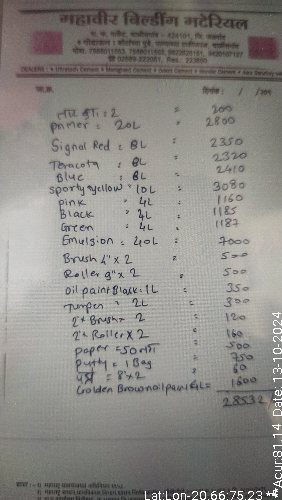 महावीर बिल्डींग मटेरियल
दिनांक : / /201
2 = 200
Primer = 20L = 2800
Signal Red = 8L = 2350
Teracota = 8L = 2320
Blue = 8L = 2410
Sporty yellow = 10L = 3080
Pink 4L = 1160
Black 4L = 1185
Green 4L = 1187
Emulsion = 40L = 7000
Brush 4" x 2 = 500
Roller 9" x 2 = 500
Oil paint Black = 1L = 350
Turpen = 2L = 300
2" Brush = 2 = 120
2" Roller x 2 = 160
Paper = 50 = 500
Putty = 1 Bag = 750
8 x 2 = 60
Golden Brown oil paint 4L = 1600
28532
Acur:81.14 Date: 13-10-2024
Lat:Lon-20.66:75.23